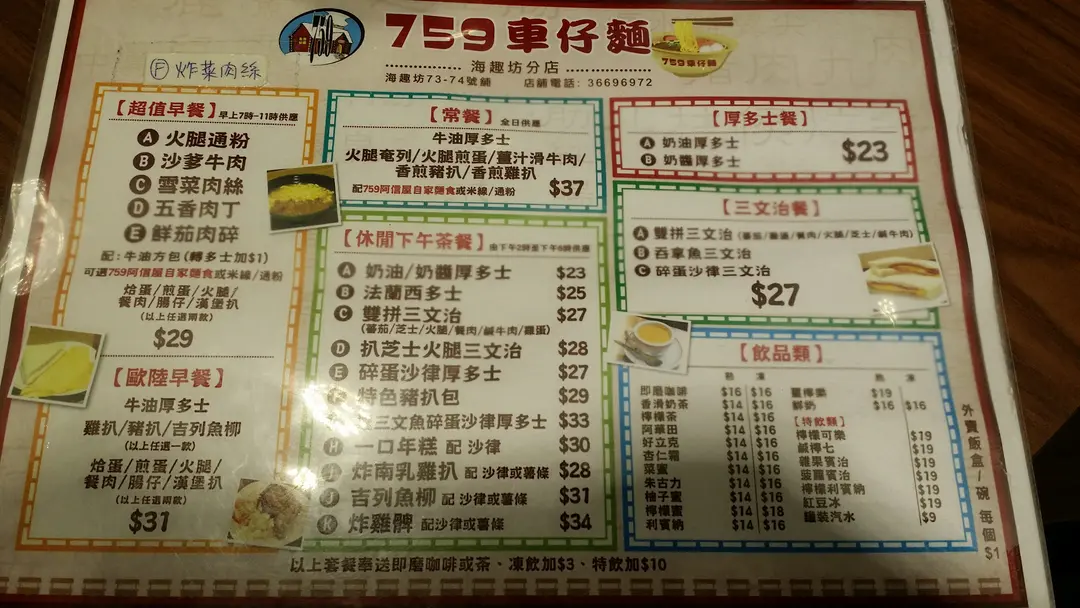 759車仔麵
海趣坊分店
海趣坊73-74號舖 店舖電話: 36696972
Ⓕ 炸菜肉絲
【超值早餐】早上7時-11時供應
A 火腿通粉
B 沙爹牛肉
C 雪菜肉絲
D 五香肉丁
E 鮮茄肉碎
配:牛油方包(轉多士加$1)
可選759阿信屋自家麵食或米線/通粉
烚蛋/煎蛋/火腿/
餐肉/腸仔/漢堡扒
(以上任選兩款)
$29
【歐陸早餐】
牛油厚多士
雞扒/豬扒/吉列魚柳
(以上任選一款)
烚蛋/煎蛋/火腿/
餐肉/腸仔/漢堡扒
(以上任選兩款)
$31
【常餐】全日供應
牛油厚多士
火腿奄列/火腿煎蛋/薑汁滑牛肉/
香煎豬扒/香煎雞扒
配759阿信屋自家麵食或米線/通粉 $37
【休閒下午茶餐】由下午2時至下午6時供應
A 奶油/奶醬厚多士 $23
B 法蘭西多士 $25
C 雙拼三文治 $27
(蕃茄/芝士/火腿/餐肉/鹹牛肉/雞蛋)
D 扒芝士火腿三文治 $28
E 碎蛋沙律厚多士 $27
特色豬扒包 $29
三文魚碎蛋沙律厚多士 $33
H 一口年糕 配沙律 $30
炸南乳雞扒 配沙律或薯條 $28
J 吉列魚柳 配沙律或薯條 $31
K 炸雞髀 配沙律或薯條 $34
【厚多士餐】
A 奶油厚多士
B 奶醬厚多士
$23
【三文治餐】
A 雙拼三文治 (蕃茄/雞蛋/餐肉/火腿/芝士/鹹牛肉)
B 吞拿魚三文治
C 碎蛋沙律三文治
$27
【飲品類】
熱 凍
即磨咖啡 $16 $16
香滑奶茶 $14 $16
檸檬茶 $14 $16
阿華田 $14 $16
好立克 $14 $16
杏仁霜 $14 $16
菜蜜 $14 $16
朱古力 $14 $16
柚子蜜 $14 $16
檸檬蜜 $14 $18
利賓納 $14 $16
熱 凍
薑檸樂 $19
鮮奶 $16 $16
【特飲類】
檸檬可樂 $19
鹹檸七 $19
雜果賓治 $19
菠蘿賓治 $19
檸檬利賓納 $19
紅豆冰 $19
罐裝汽水 $9
外賣飯盒/碗 每個$1
以上套餐奉送即磨咖啡或茶、凍飲加$3、特飲加$10